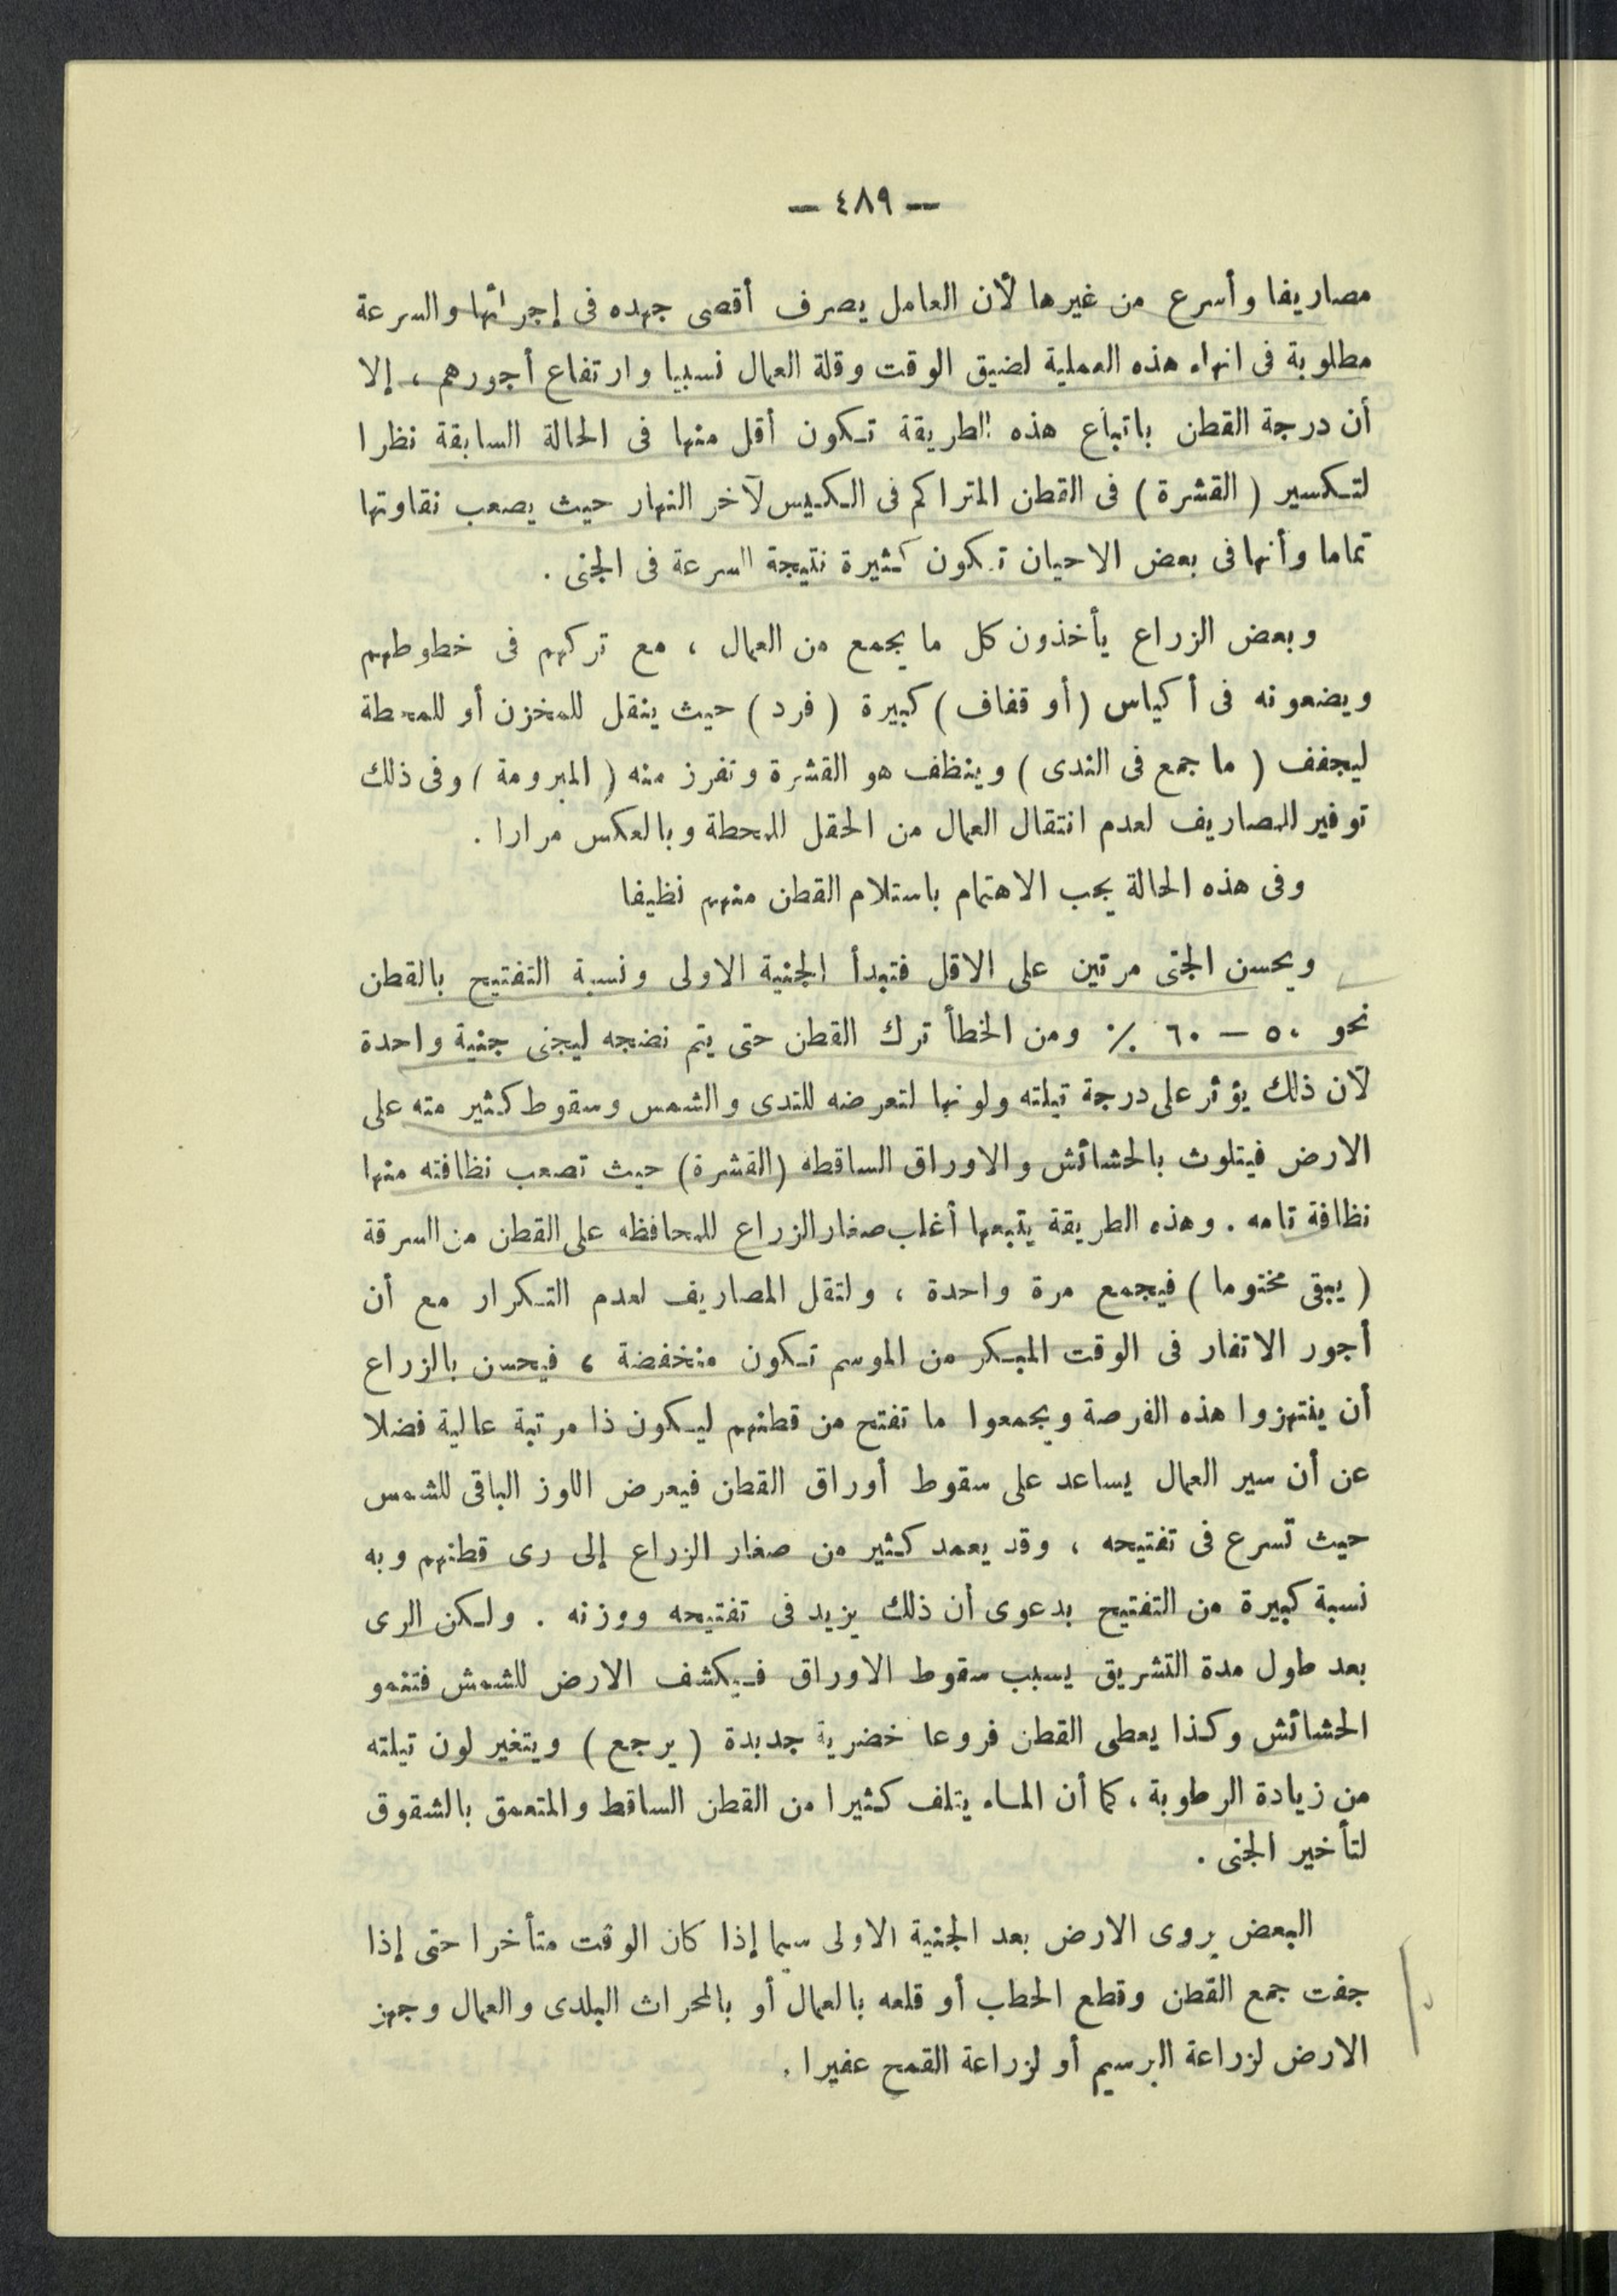 — ٤٨٩ —
مصاريفا وأسرع من غيرها لأن العامل يصرف أقصى جهده فى إجرائها والسرعة
مطلوبة فى انهاء هذه العملية لضيق الوقت وقلة العمال نسبيا وارتفاع أجورهم ، إلا
أن درجة القطن باتباع هذه الطريقة تكون أقل منها فى الحالة السابقة نظرا
لتكسير ( القشرة ) فى القطن المتراكم فى الكيس لآخر النهار حيث يصعب نقاوتها
تماما وأنها فى بعض الاحيان تكون كثيرة نتيجة السرعة فى الجنى .
وبعض الزراع يأخذون كل ما يجمع من العمال ، مع تركهم فى خطوطهم
ويضعونه فى أكياس ( أو قفاف ) كبيرة ( فرد ) حيث ينقل للمخزن أو للمحطة
ليجفف ( ما جمع فى الندى ) وينظف هو القشرة وتفرز منه ( المبرومة ) وفى ذلك
توفير للمصاريف لعدم انتقال العمال من الحقل للمحطة وبالعكس مرارا .
وفى هذه الحالة يجب الاهتمام باستلام القطن منهم نظيفا
ويحسن الجنى مرتين على الاقل فتبدأ الجنية الاولى ونسبة التفتيح بالقطن
نحو ٥٠ — ٦٠ ٪ ومن الخطأ ترك القطن حتى يتم نضجه ليجنى جنية واحدة
لأن ذلك يؤثر على درجة تيلته ولونها لتعرضه للندى والشمس وسقوط كثير منه على
الارض فيتلوث بالحشائش والاوراق الساقطه ( القشرة ) حيث تصعب نظافته منها
نظافة تامه . وهذه الطريقة يتبعها أغلب صغار الزراع للمحافظه على القطن من السرقة
( يبقى مختوما ) فيجمع مرة واحدة ، ولتقل المصاريف لعدم التكرار مع أن
أجور الانفار فى الوقت المبكر من الموسم تكون منخفضة ، فيحسن بالزراع
أن ينتهزوا هذه الفرصة ويجمعوا ما تفتح من قطنهم ليكون ذا مرتبة عالية فضلا
عن أن سير العمال يساعد على سقوط أوراق القطن فيعرض اللوز الباقى للشمس
حيث تسرع فى تفتيحه ، وقد يعمد كثير من صغار الزراع إلى رى قطنهم وبه
نسبة كبيرة من التفتيح بدعوى أن ذلك يزيد فى تفتيحه ووزنه . ولكن الرى
بعد طول مدة التشريق يسبب سقوط الاوراق فيكشف الارض للشمش فتنمو
الحشائش وكذا يعطى القطن فروعا خضرية جديدة ( يرجع ) ويتغير لون تيلته
من زيادة الرطوبة ، كما أن الماء يتلف كثيرا من القطن الساقط والمتعمق بالشقوق
لتأخير الجنى .
البعض يروى الارض بعد الجنية الاولى سيما إذا كان الوقت متأخرا حتى إذا
جفت جمع القطن وقطع الحطب أو قلعه بالعمال أو بالمحراث البلدى والعمال وجهز
الارض لزراعة البرسيم أو لزراعة القمح عفيرا .